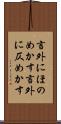 言外にほの
めかす言外
に仄めかす